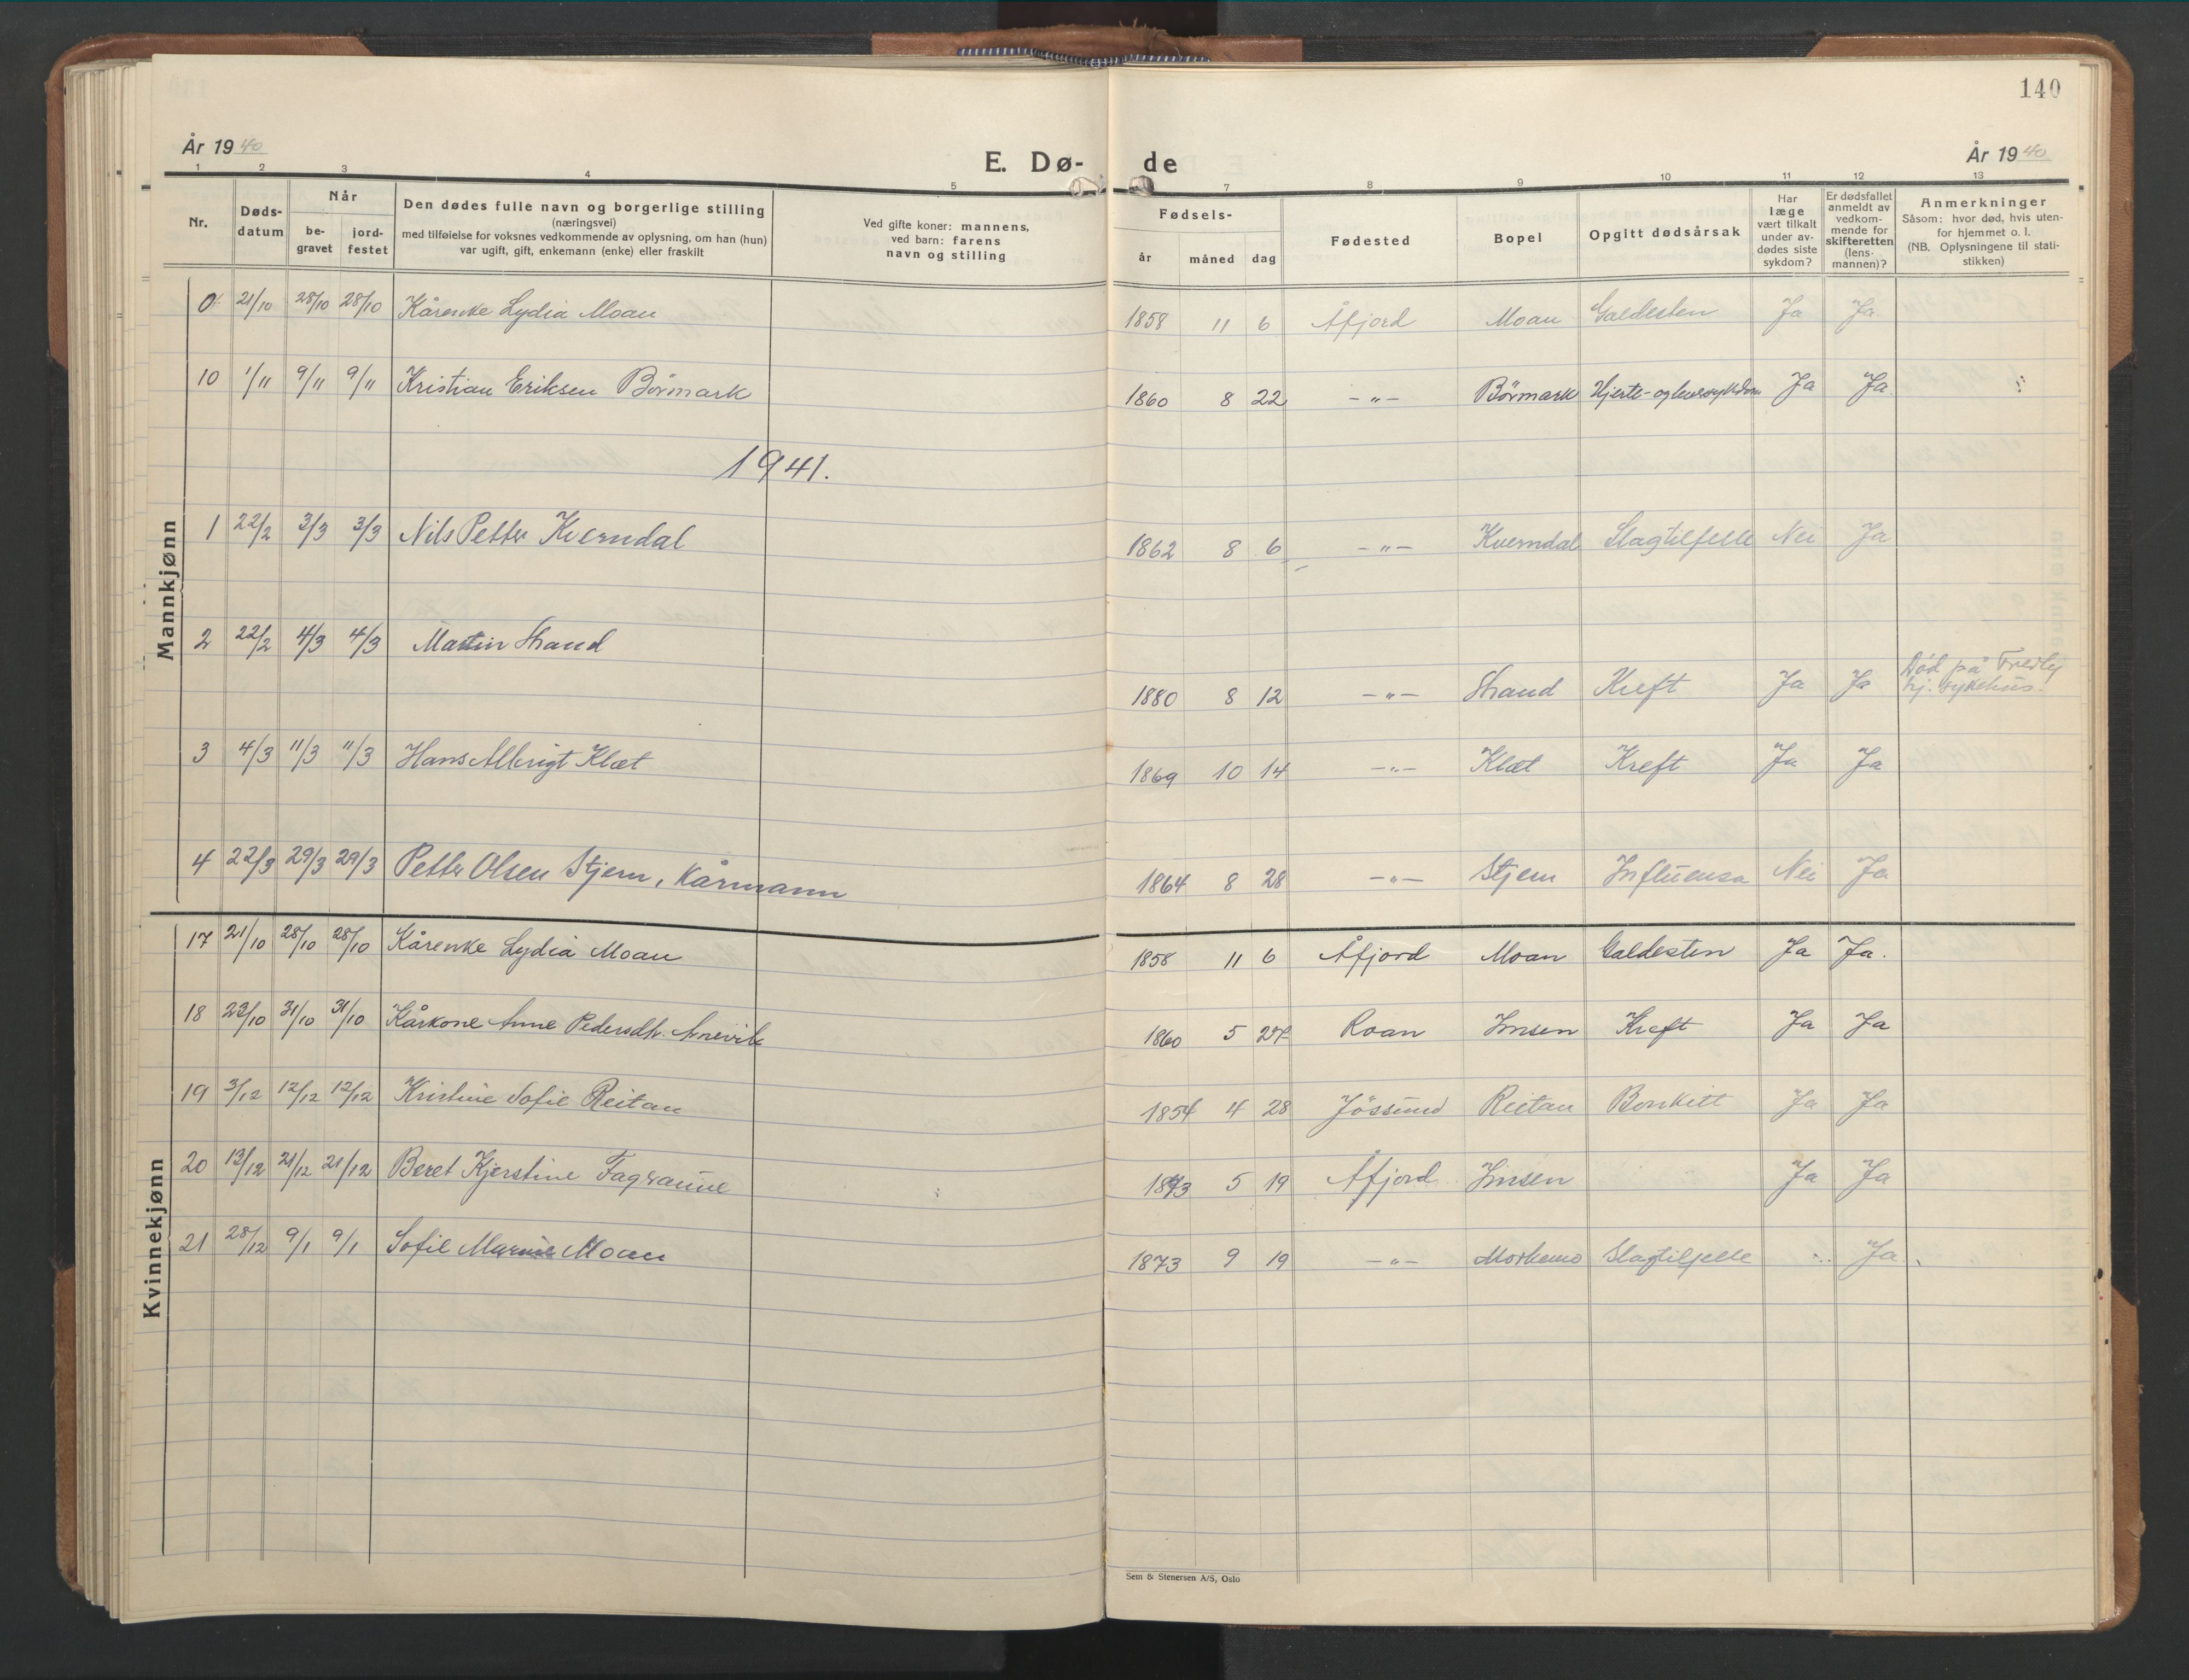 140
År 1940
E. Dø-
de
År 1940
1 2 3 4 5 7 8 9 10 11 12 13
Nr.
Døds-
datum
Når
be-
gravet
jord-
festet
Den dødes fulle navn og borgerlige stilling
(næringsvei)
med tilføielse for voksnes vedkommende av oplysning, om han (hun)
var ugift, gift, enkemann (enke) eller fraskilt
Ved gifte koner: mannens,
ved barn: farens
navn og stilling
Fødsels-
år måned dag
Fødested
Bopel
Opgitt dødsårsak
Har
læge
vært tilkalt
under av-
dødes siste
sykdom?
Er dødsfallet
anmeldt av
vedkom-
mende for
skifteretten
(lens-
mannen)?
Anmerkninger
Såsom: hvor død, hvis uten-
for hjemmet o. l.
(NB. Oplysningene til stati-
stikken)
Mannkjønn
0 21/10 28/10 28/10 Kårenke Lydia Moan 1858 11 6 Åfjord Moan Galdesten Ja Ja.
10 1/11 9/11 9/11 Kristian Eriksen Börmark 1860 8 22 -"- Börmark Hjerte- og leversykdom Ja Ja.
1941.
1 22/2 3/3 3/3 Nils Petter Kverndal 1862 8 6 -"- Kverndal Slagtilfelle Nei Ja
2 22/2 4/3 4/3 Martin Strand 1880 8 12 -"- Strand Kreft Ja Ja Död på Fredly
hj. sykehus.
3 4/3 11/3 11/3 Hans Albrigt Klæt 1869 10 14 -"- Klæt Kreft Ja Ja
4 22/3 29/3 29/3 Petter Olsen Stjern, Kårmann 1864 8 28 -"- Stjern Influensa Nei Ja
Kvinnekjønn
17 21/10 28/10 28/10 Kårenke Lydia Moan 1858 11 6 Åfjord Moan Galdesten Ja Ja.
18 23/10 31/10 31/10 Kårkone Anne Pedersdtr. Arnevik 1860 5 27 Roan Imsen Kreft Ja Ja
19 3/12 12/12 12/12 Kristine Sofie Reitan 1854 4 28 Jössund Reitan Bronkitt Ja Ja
20 13/12 21/12 21/12 Beret Kjerstine Fagranne 1873 5 19 Åfjord Imsen Ja Ja
21 28/12 9/1 9/1 Sofie Marnie Moan 1873 9 19 -"- Morkemo Slagtilfelle Ja
Sem & Stenersen A/S, Oslo